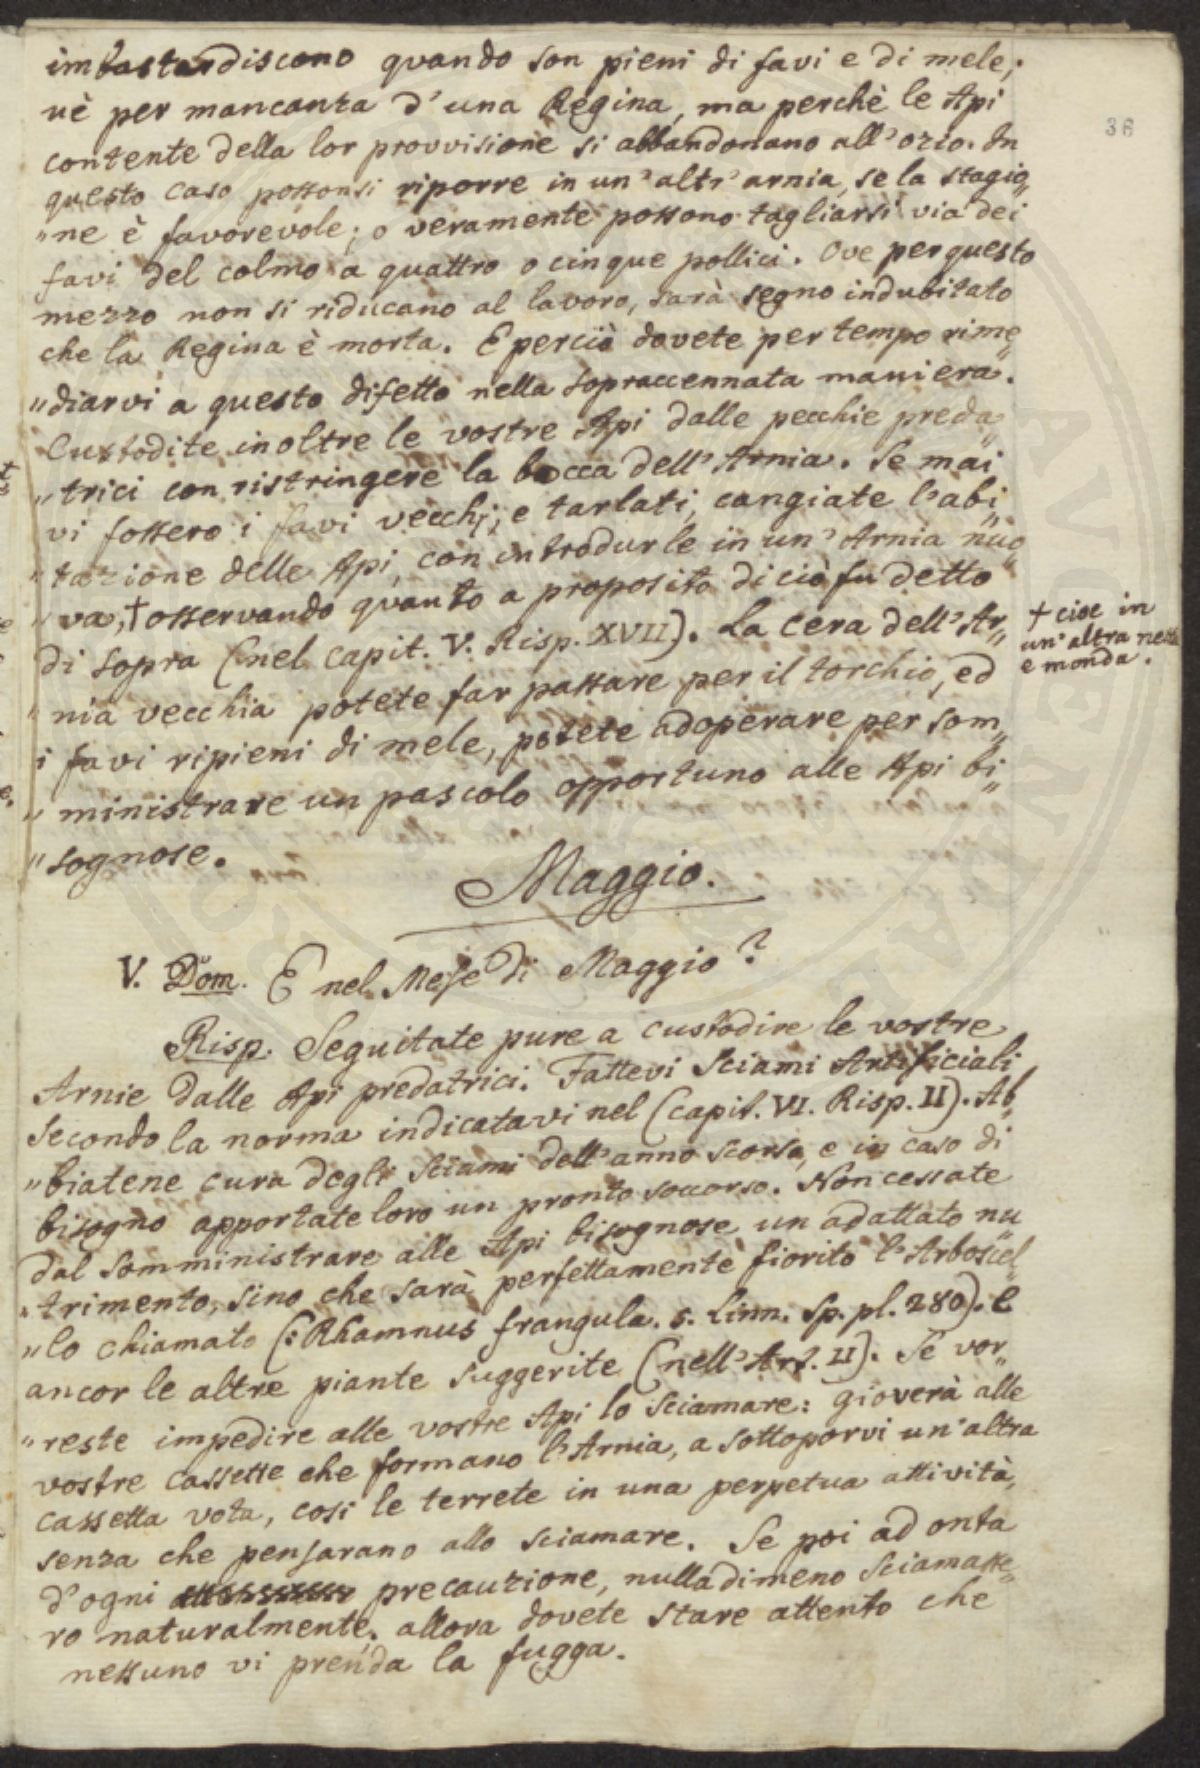 36
imbastardiscono quando son pieni di favi e di mele;
nè per mancanza d'una Regina, ma perchè le Api
contente della lor provvisione si abbandonano all'ozio. In
questo caso possonsi riporre in un'altr'arnia, se la stagio„
„ne è favorevole; o veramente possono tagliarsi via dei
favi del colmo a quattro o cinque pollici. Ove per questo
mezzo non si riducano al lavoro, sarà segno indubitato
che la Regina è morta. E perciò dovete per tempo rime„
„diarvi a questo difetto nella sopraccennata maniera.
Custodite inoltre le vostre Api dalle pecchie preda„
„trici con ristringere la bocca dell'Arnia. Se mai
vi fossero i favi vecchj, e tarlati, cangiate l'abi„
„tazione delle Api, con introdurle in un'Arnia nuo„
„va, † osservando quanto a proposito di ciò fu detto
di sopra (nel capit. V. Risp. XVII). La cera dell'Ar„
„nia vecchia potete far passare per il torchio, ed
i favi ripieni di mele, potete adoperare per som„
„ministrare un pascolo opportuno alle Api bi„
„sognose.
† cioe in
un'altra netta
e monda.
Maggio.
V. Dom. E nel Mese di Maggio?
Risp. Seguitate pure a custodire le vostre
Arnie dalle Api predatrici. Fattevi Sciami Artificiali
secondo la norma indicatavi nel (capit. VI. Risp. II). Ab„
„biatene cura degli Sciami dell'anno scorso, e in caso di
bisogno apportate loro un pronto soccorso. Non cessate
dal somministrare alle Api bisognose un adattato nu„
„trimento, sino che sarà perfettamente fiorito l'Arboscel„
„lo chiamato (: Rhamnus frangula. s. Linn. Sp. pl. 280). E
ancor le altre piante suggerite (nell'Art. II). Se vor„
„reste impedire alle vostre Api lo Sciamare: gioverà alle
vostre cassette che formano l'Arnia, a sottoporvi un'altra
cassetta vota, così le terrete in una perpetua attività,
senza che pensarano allo sciamare. Se poi ad onta
d'ogni precauzione, nulladimeno Sciamasse„
ro naturalmente, allora dovete stare attento che
nessuno vi prenda la fugga.